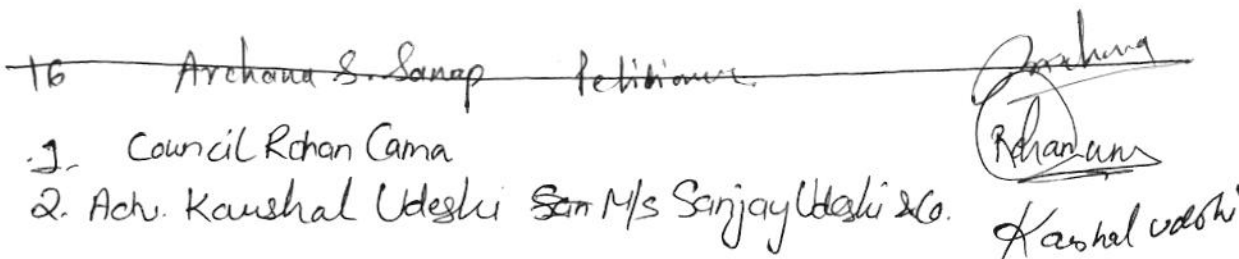 16 Archana S. Sanap Petitioner. Archana
1. Council Rohan Cama Rohan Cama
2. Adv. Kaushal Udeshi San M/s Sanjay Udeshi & Co. Kaushal Udeshi